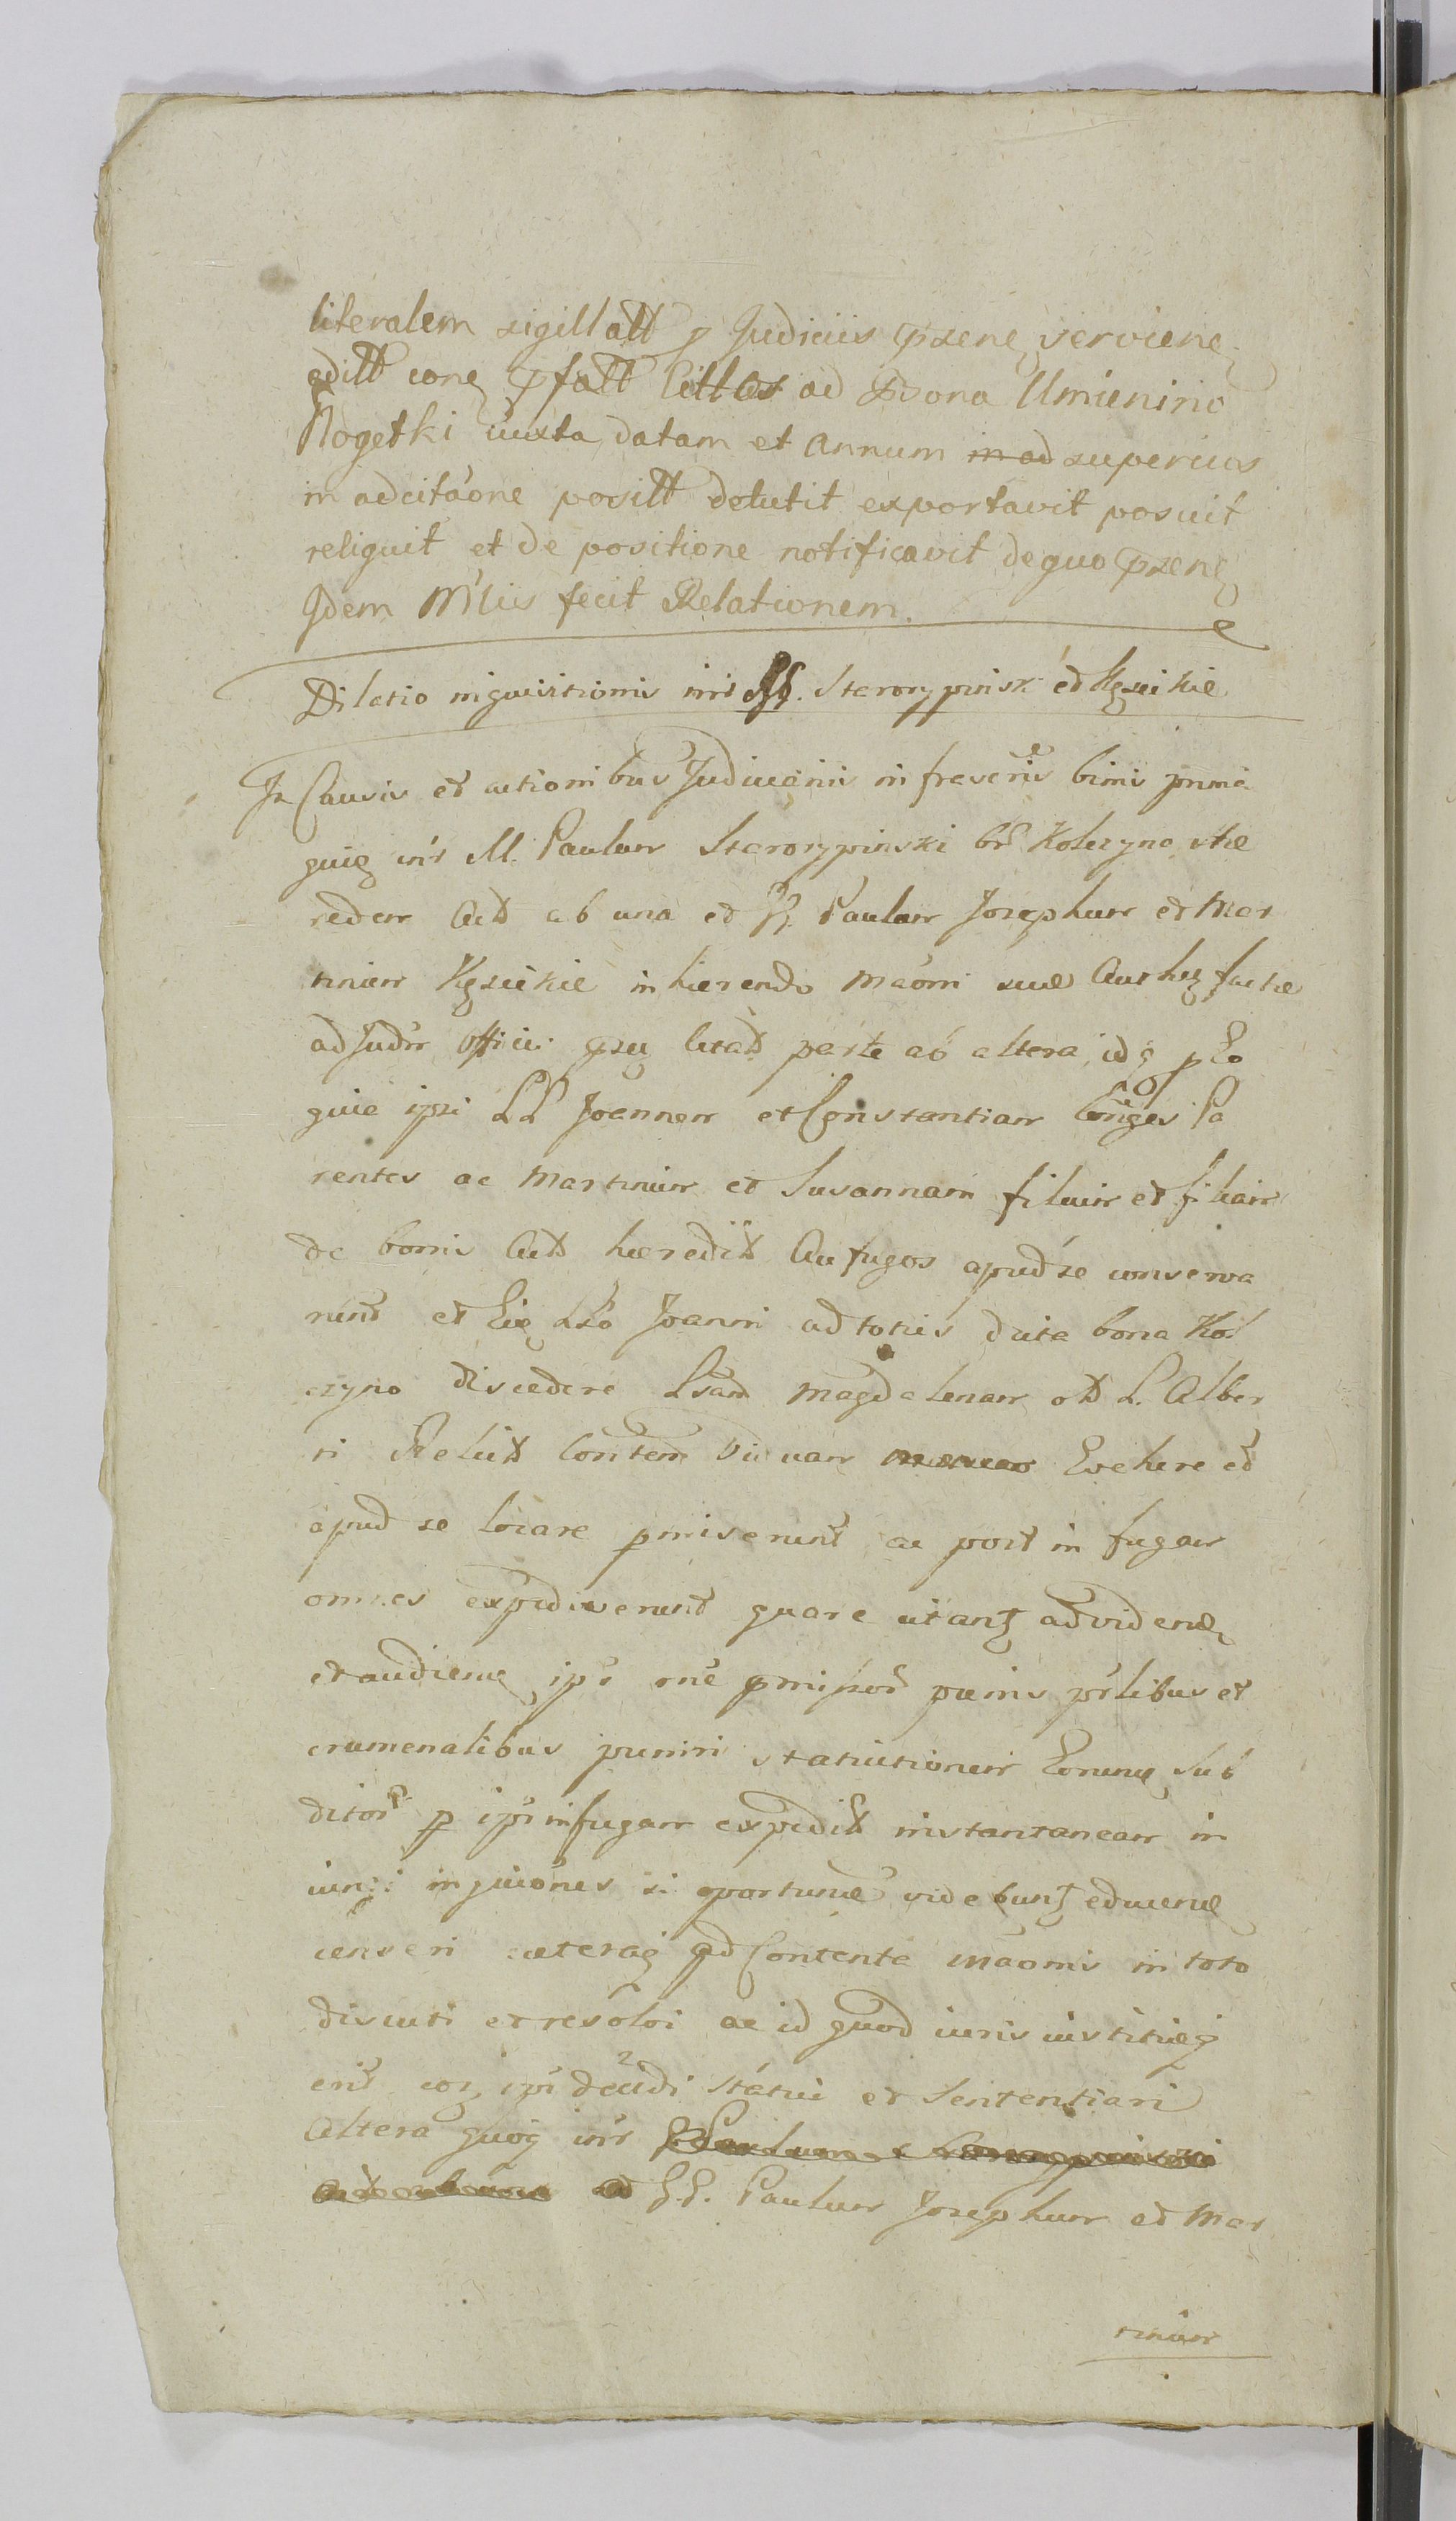 literalem sigillatt p Judiciis pzene serviene
editt cone pfatt littas ad Bona Umienino
Rogetki iuxta datam et annum in ad superius
in adcitaone positt detulit exportavit posuit
reliquit et de positione notificavit de quo pzene
Idem Mlis fecit Relationem.
Dilatio inquisitionis intr GG. Starorypinski et Kęsickie
In Causis et actionibus Judicianis infrascris binis prima
quae intr M. Paulum Starorypinski br Kolczyno Hae
redem Actt ab una et GG. Paulum Josephum et Mar
tinum Kęsickie inhaerendo maoni suae Authae factae
ad Judm officii citatt parte ab altera idq p Eo
quia ipsi LL Joannem et Constantiam Conges Pa
rentes ac Martinum et Susannam filium et filiam
de bonis Actt haeredit Aufugos apud se conserva
runt et Joanni ad totius dicta bona Kol
czyno discedere Magdalenam ott L. Alber
ti Relict Viduam Evehere et
apud se locare pmiserunt ac post in fugam
omnes expediverunt quare citant ad videne
et audiene ipos rne pmissor paenis plibus et
crumenalibus puniri statuitionem Eorune Sub
ditor p ipos in fugam expedit instantaneam in
iungi inquiones si oportunae videbunt educene
censeri caeteraq ad Contenta maonis in toto
discuti et resolvi ac id quod iuris iustitiaeq
erit cor ipi decidi statui et sententiari
Altera quoq intr Paulum Starorypinski
Actt ab una ad GG. Paulum Josephum et Mar
tinum